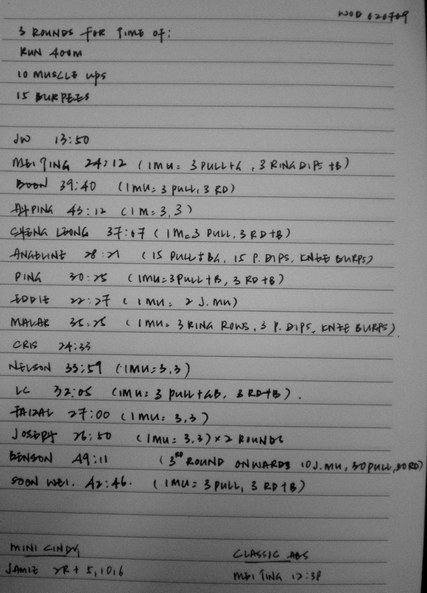 WOD 020709
3 ROUNDS FOR TIME OF:
RUN 400M
10 MUSCLE UPS
15 BURPEES
JW 13:50
MEI TING 24:12 (1MU= 3 PULL+G, 3 RING DIPS +B)
BOON 39:40 (1MU= 3 PULL, 3 RD)
AH PING 43:12 (1M = 3,3)
CHENG LEONG 37:07 (1M=3 PULL, 3 RD+B)
ANGELINE 28:21 (15 PULL+BG, 15 P. DIPS, KNEE BURPS)
PING 30:25 (1MU=3PULL+B, 3 RD+B)
EDDIE 22:27 (1 MU= 2 J.MU)
35:25 (1MU= 3 RING ROWS, 3 P. DIPS, KNEE BURPS)
CRIS 24:33
NELSON 33:59 (1MU=3,3)
LC 32:05 (1MU= 3 PULL+GB, 3 RD+B).
FAIZAL 27:00 (1MU= 3,3)
JOSEPH 26:50 (1MU= 3,3) x 2 ROUNDS
BENSON 49:11 (3RD ROUND ONWARDS 10 J.MU, 30 PULL, 30 RD)
SOON WEI. 42:46. (1MU= 3 PULL, 3 RD+B)
MINI CINDY
JAMIE 2R + 5,10,6
CLASSIC ABS
MEI TING 12:38